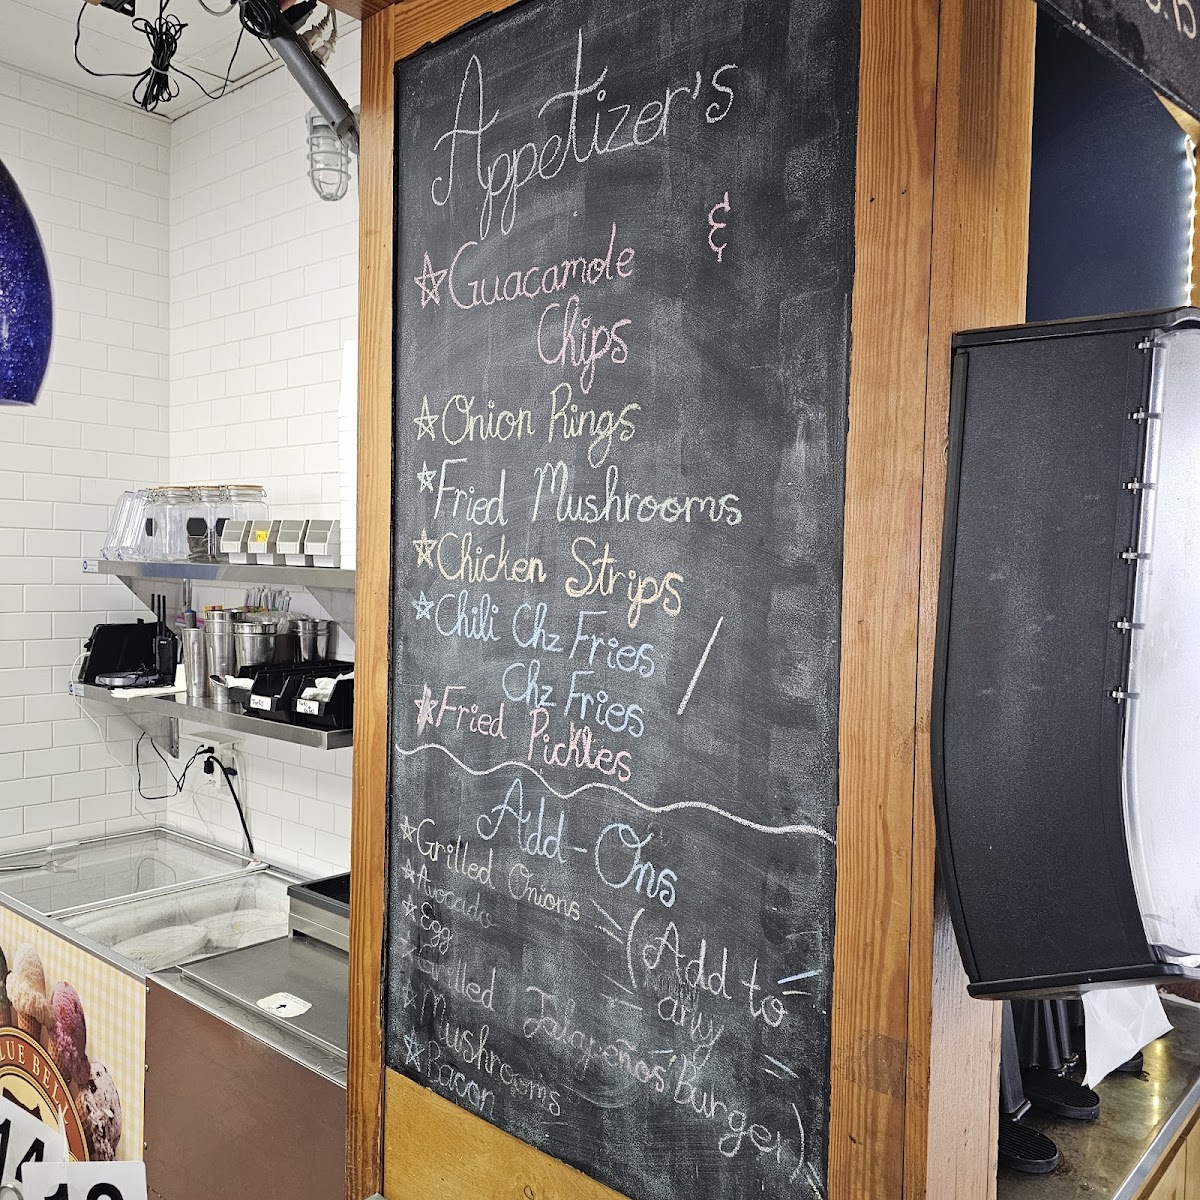 Appetizer's
☆Guacamole &
Chips
☆Onion Rings
☆Fried Mushrooms
☆Chicken Strips
☆Chili Chz Fries /
Chz Fries
☆Fried Pickles
Add-Ons
☆Grilled Onions
☆Avocado
☆Egg
☆Grilled Jalapeños
☆Mushrooms
☆Bacon
(Add to
any
Burger)
BLUE BELL
14